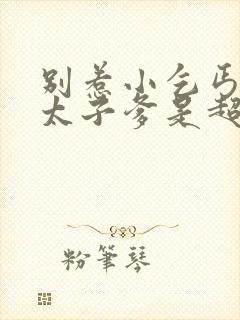 别惹小乞丐
太子爹是超
粉筆琴